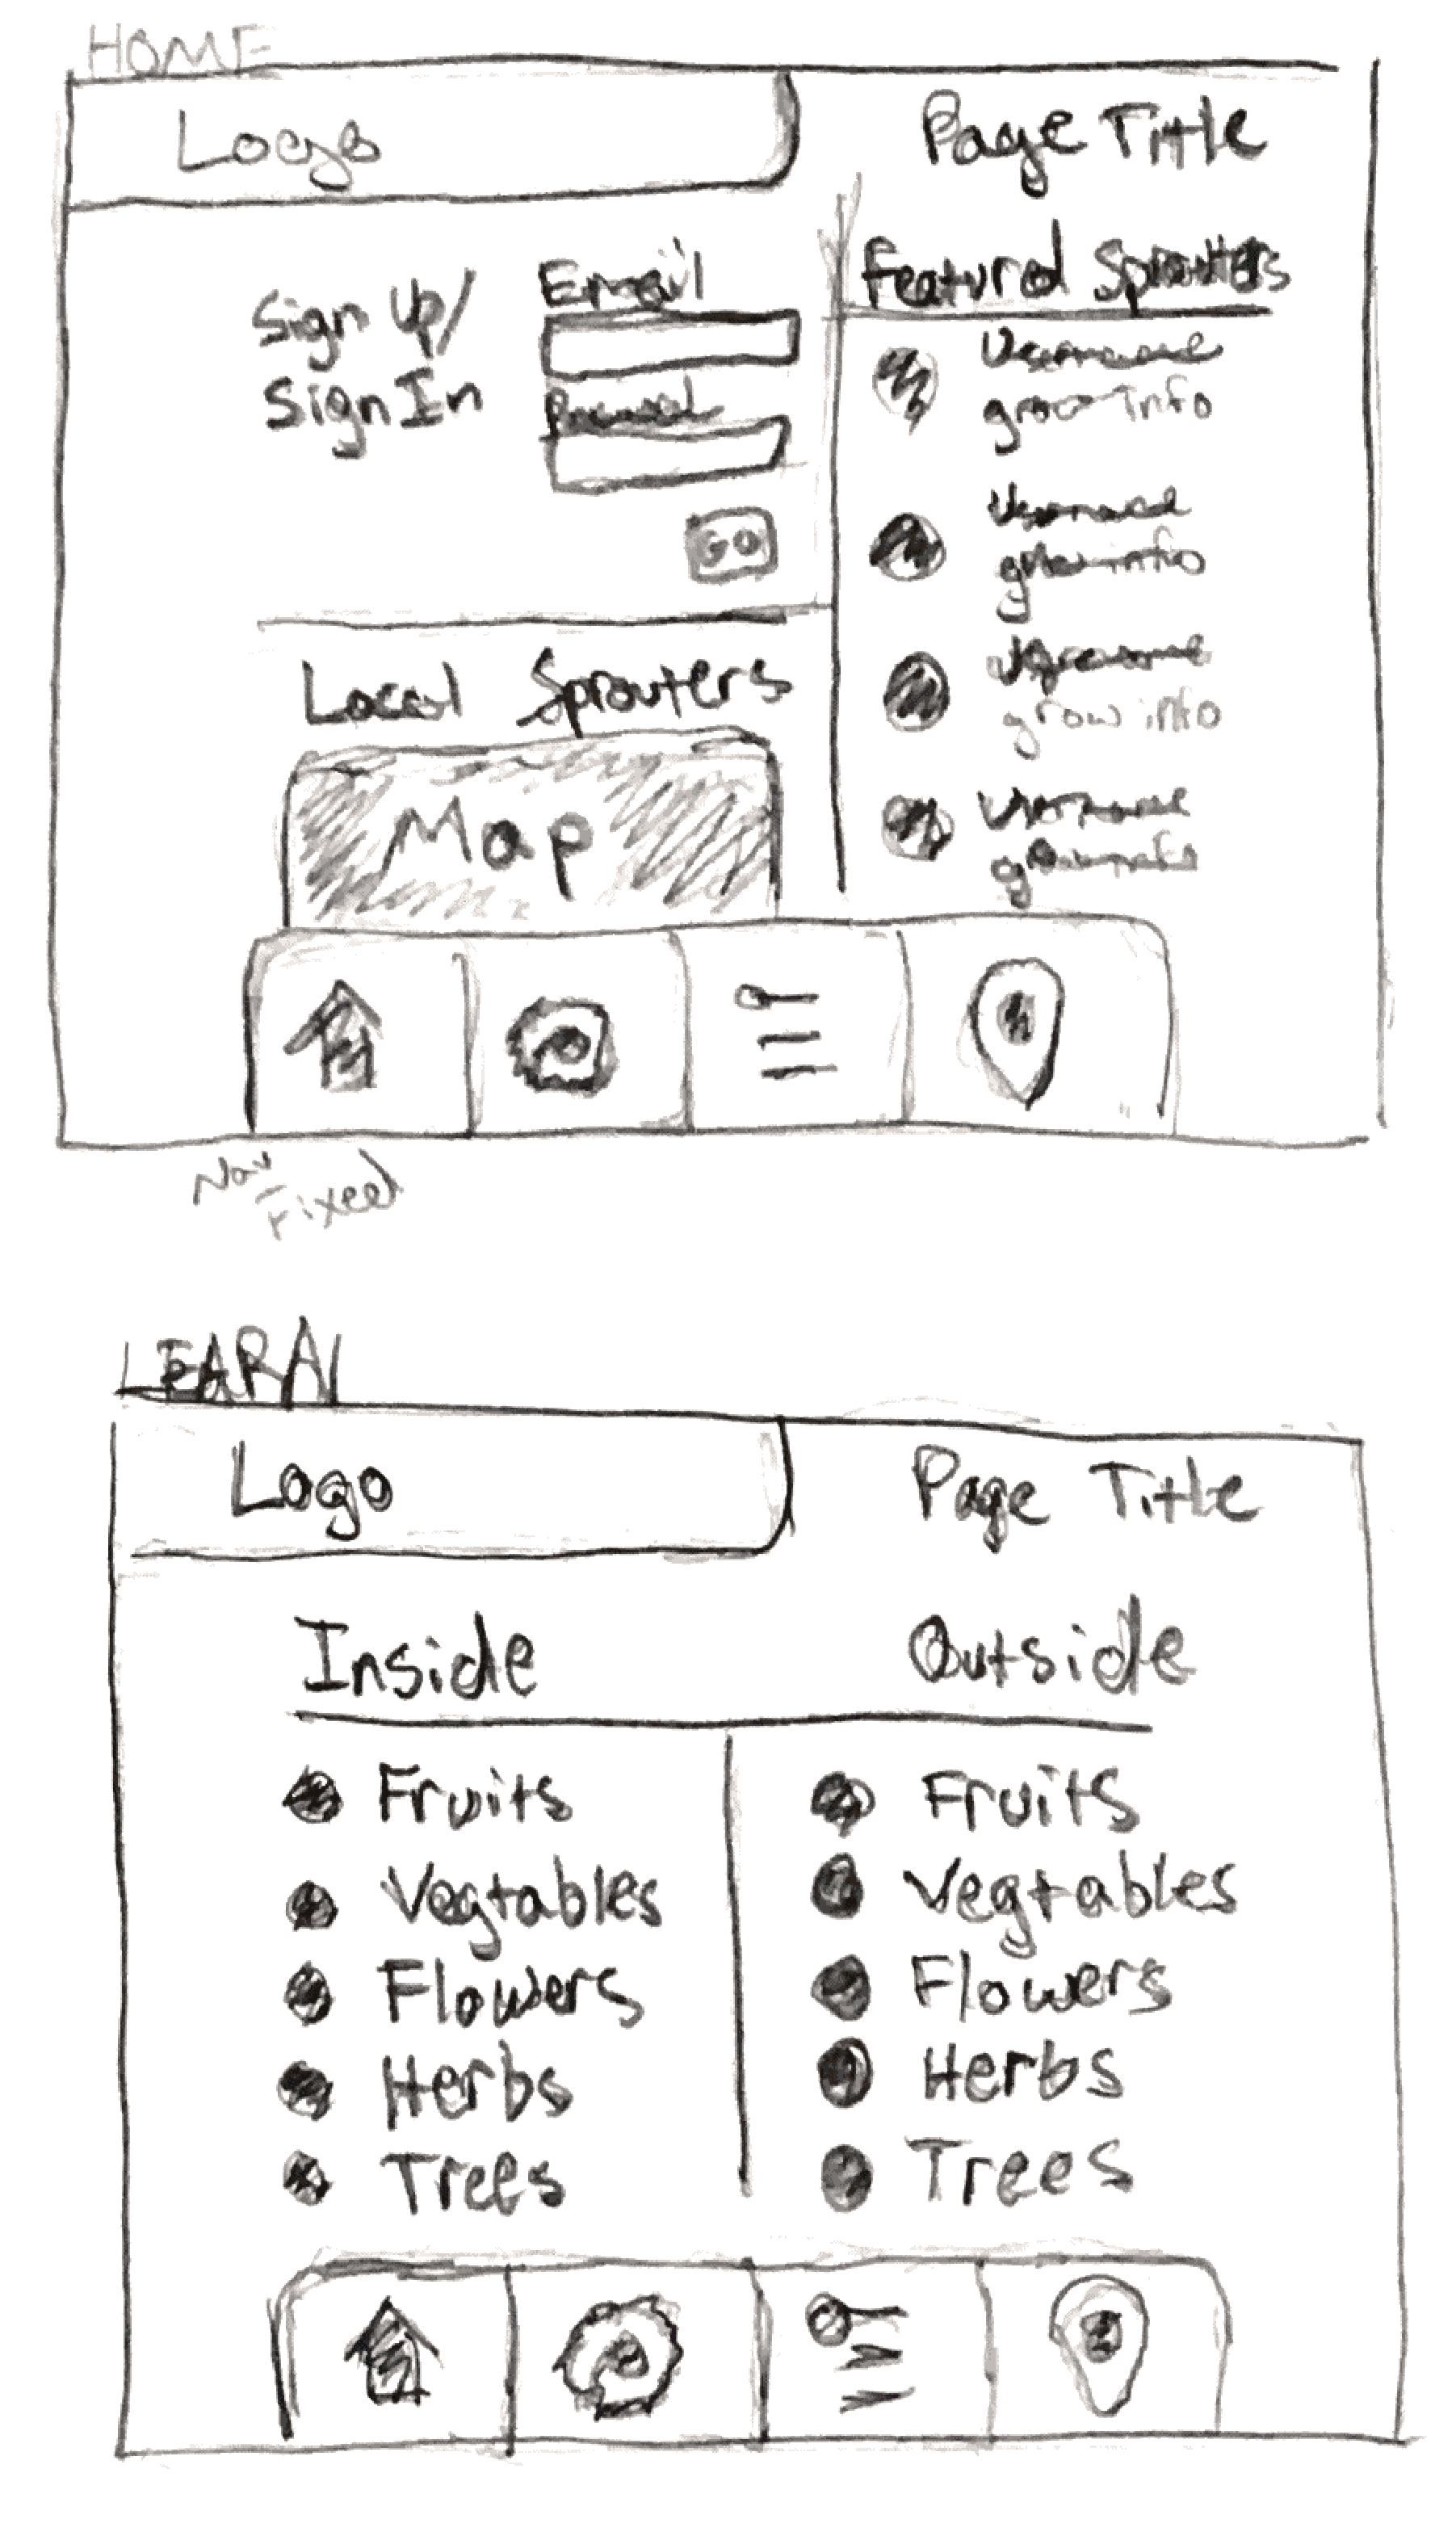 HOME
Logo
Page Title
Sign Up/
Sign In
Email
GO
Featured Sprouters
Username
grow info
Username
grow info
Username
grow info
Username
grow info
Local Sprouters
Map
Nav
Fixed
LEARN
Logo
Page Title
Inside
Outside
Fruits
Vegtables
Flowers
Herbs
Trees
Fruits
Vegtables
Flowers
Herbs
Trees